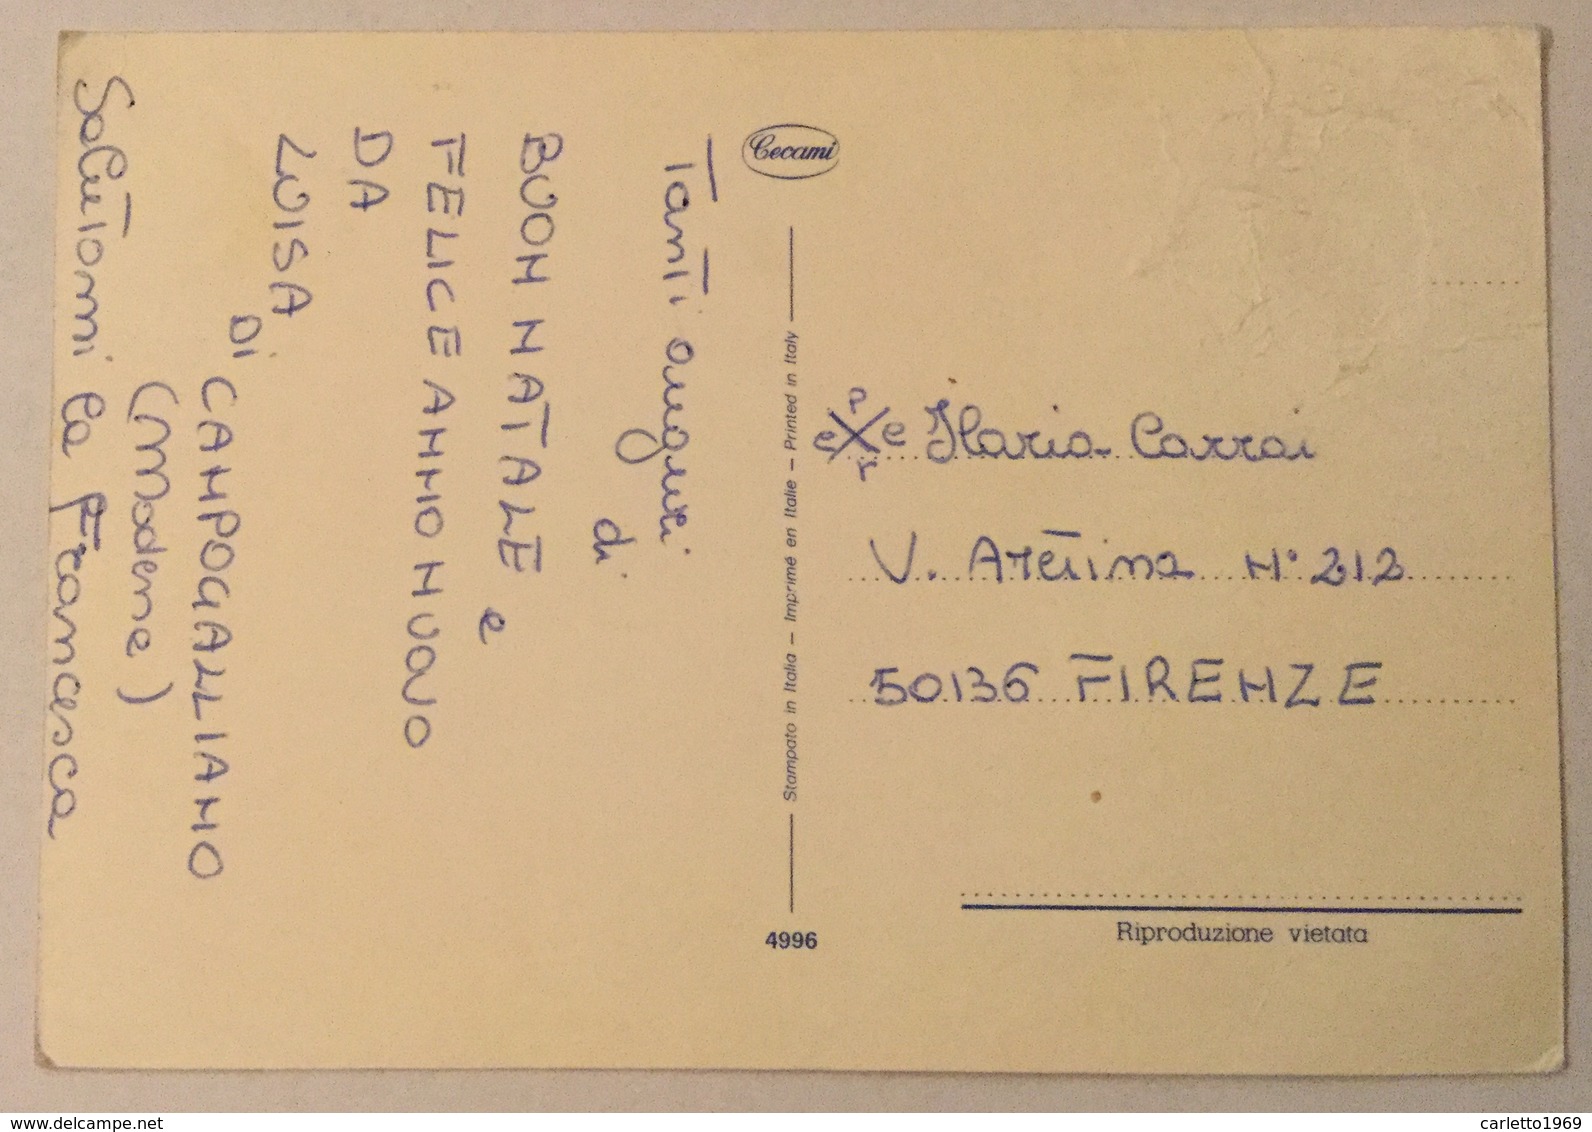 Tanti auguri
di
BUON NATALE
e
FELICE ANNO NUOVO
DA
LUISA
DI
CAMPOGALLIANO
(Modena)
Salutami la Francesca
Cecami
Stampato in Italia – Imprimé en Italie – Printed in Italy
4996
P e r e
Ilaria Carrai
V. Aretina N° 212
50136 FIRENZE
Riproduzione vietata
www.delcampe.net
carletto1969